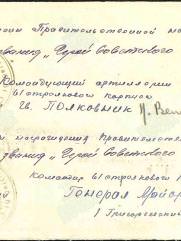 Правительственной на
звания "Герой Советского
Командующий артиллерии
61 стрелкового корпуса
Гв. Полковник
награждения Правительств
звания "Герой Советского
Командир 61 стрелкового
Генерал Майор
/Григоровский